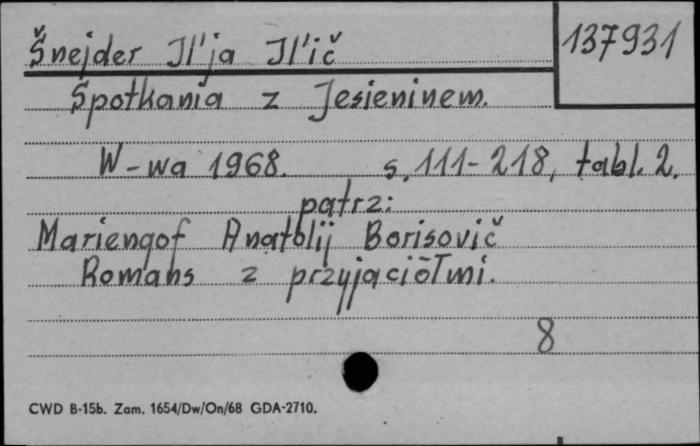 Šnejder Il'ja Il'ič
137931
Spotkania z Jesieninem.
W-wa 1968. s. 111-218, tabl. 2.
patrz:
Mariengof Anatolij Borisovič
Romans z przyjaciółmi.
8
CWD B-15b. Zam. 1654/Dw/On/68 GDA-2710.